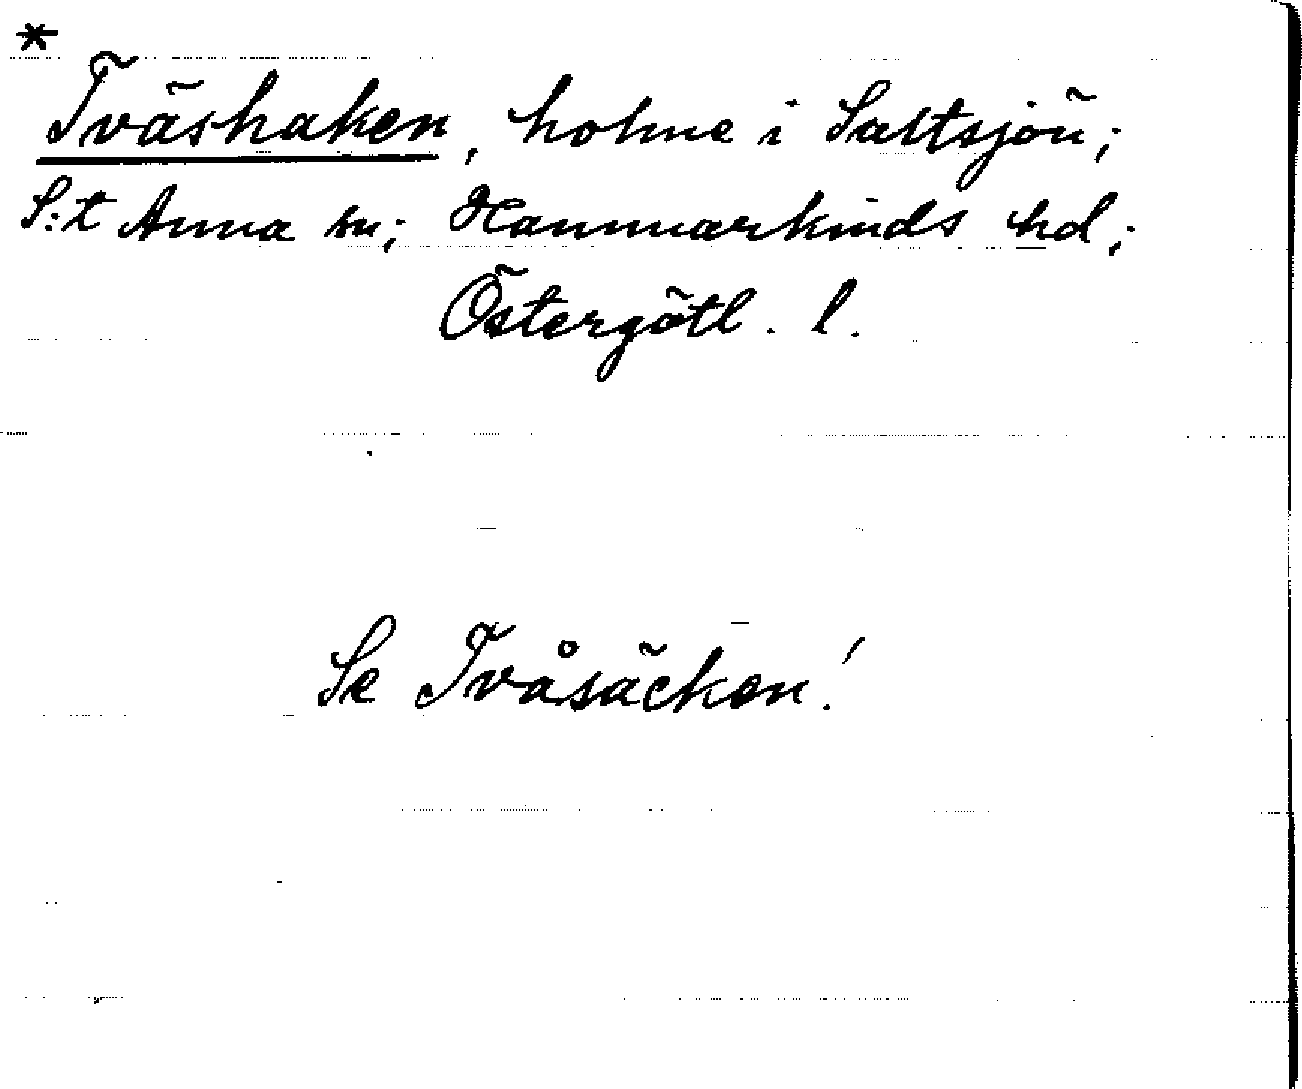 *
Tväshaken, holme i Saltsjön;
S:t Anna sn; Hammarkinds hd;
Östergötl. l.
Se Tvåsäcken!